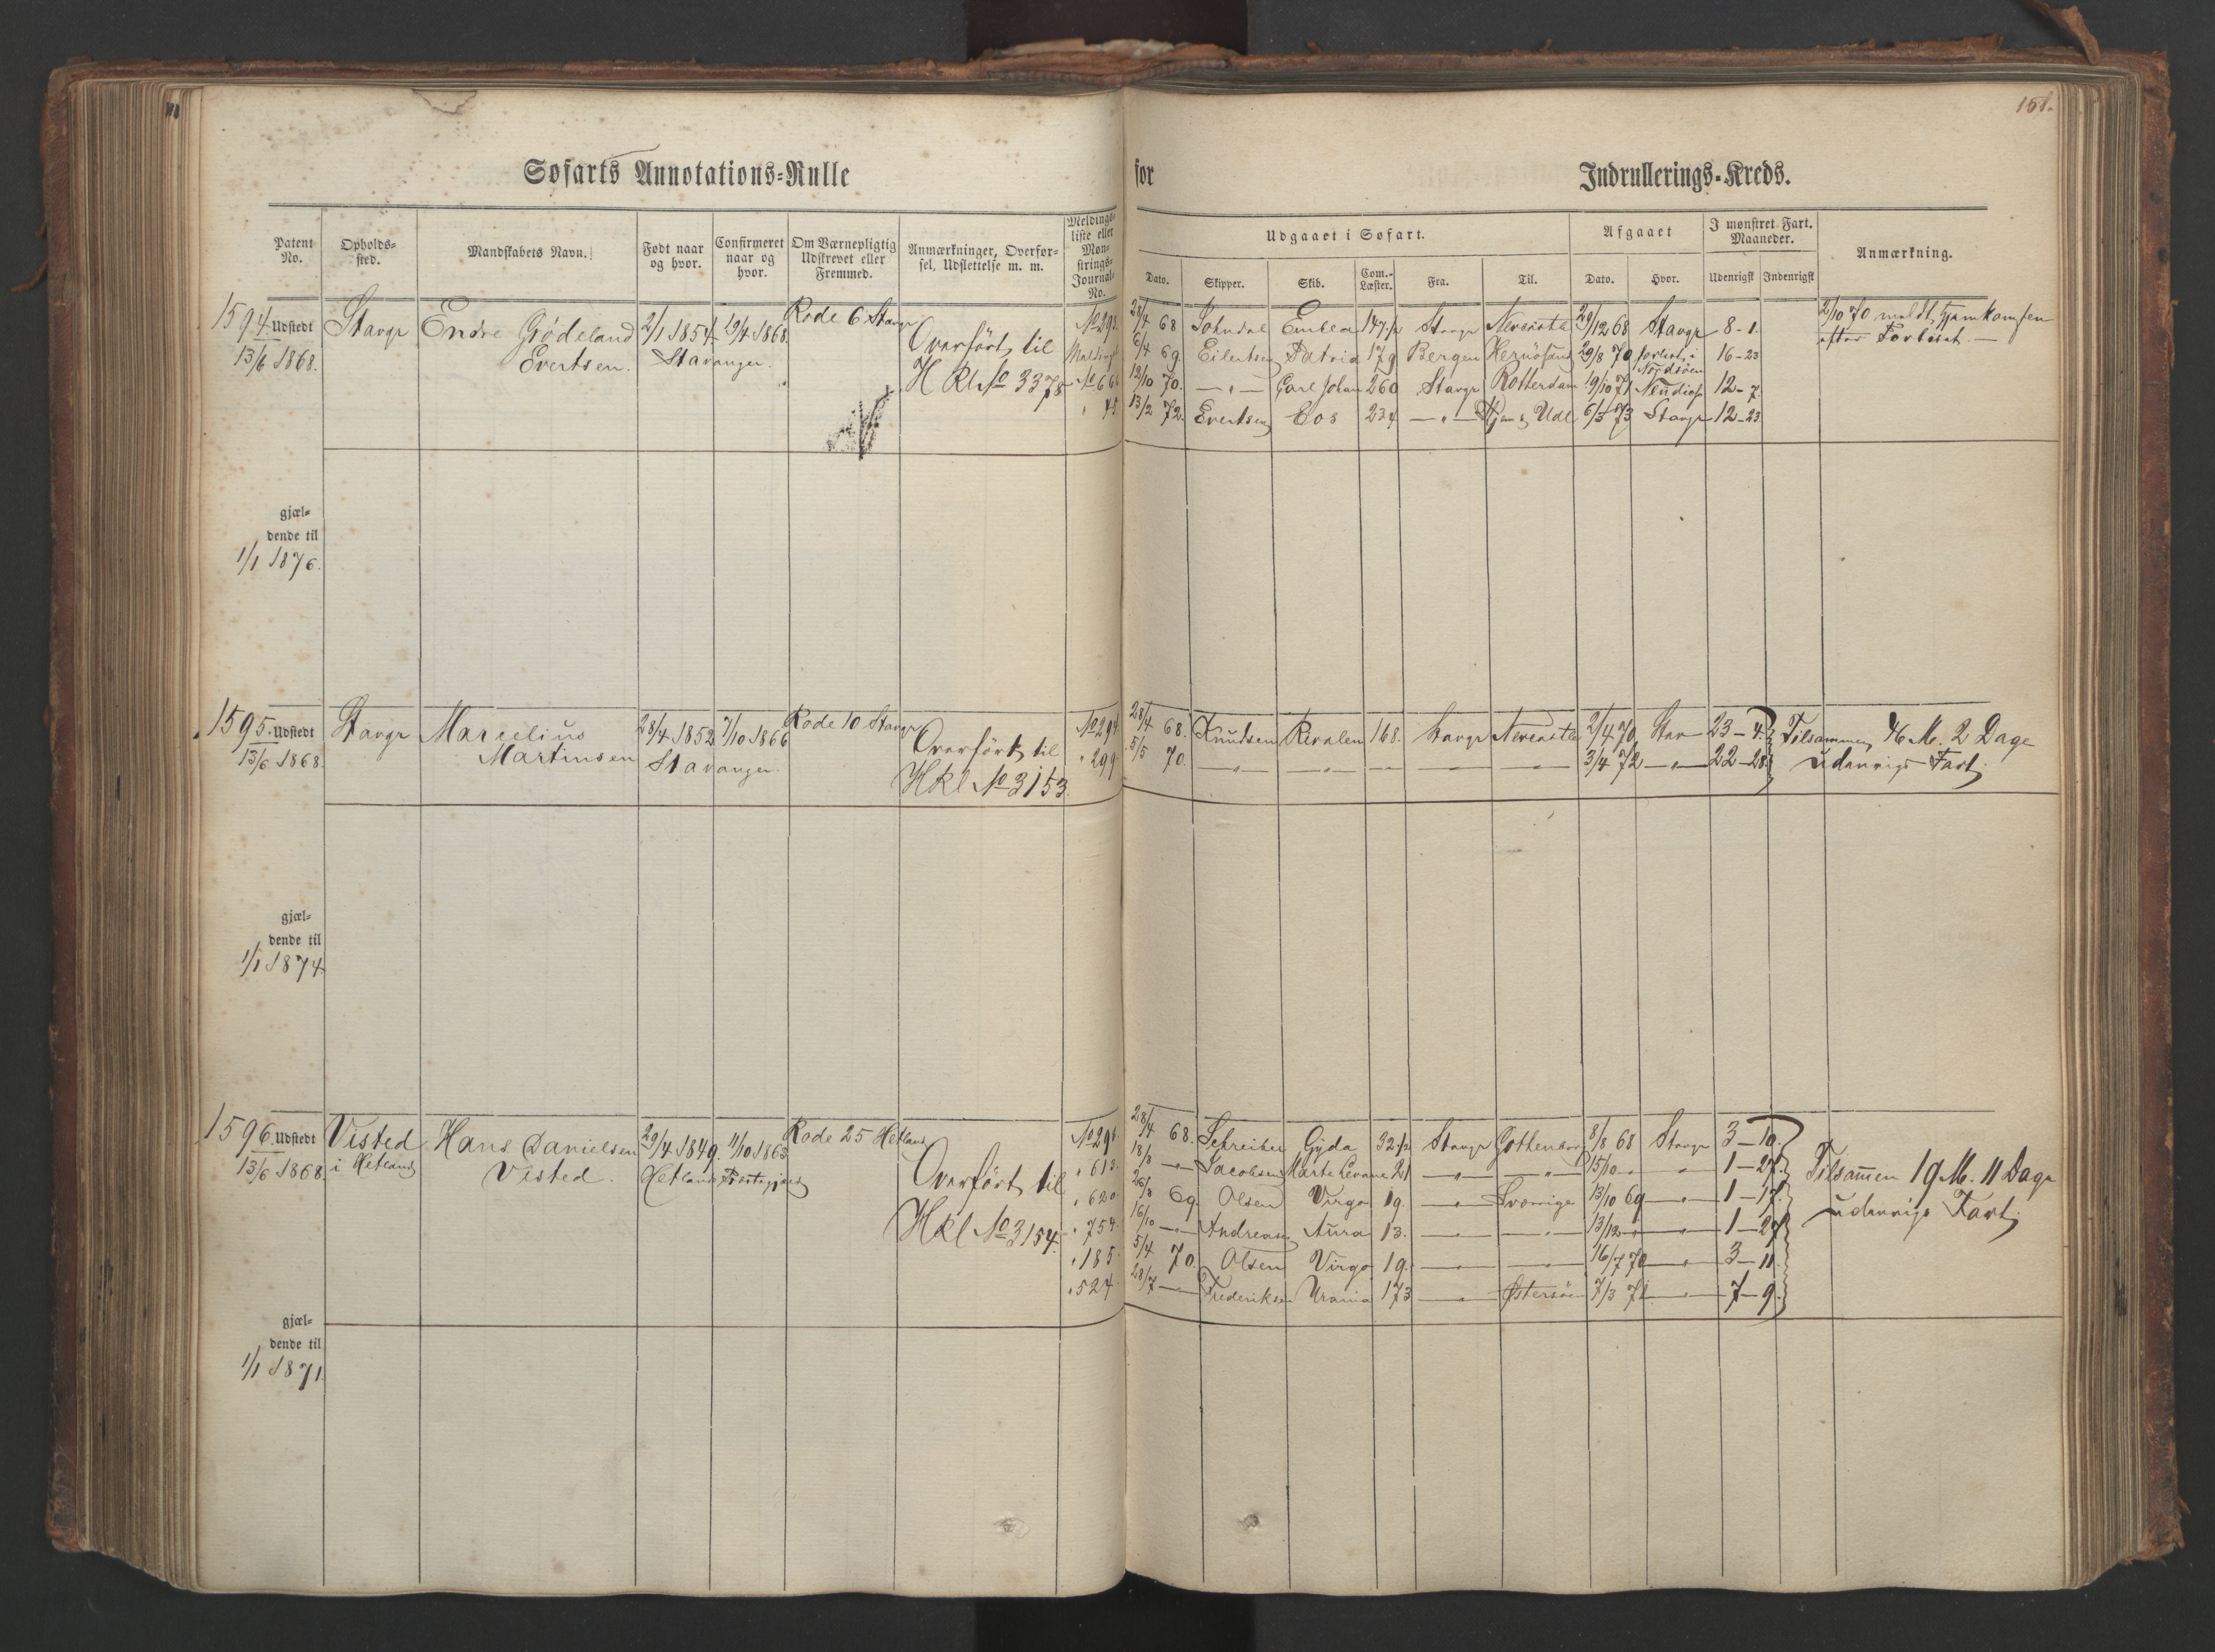 151.
Søfarts Annotations=Rulle for Indrullerings=Kreds.
Patent No.
Opholds=sted.
Mandskabets Navn.
Født naar og hvor.
Confirmeret naar og hvor.
Om Værnepligtig Udskrevet eller Fremmed.
Anmærkninger, Overfør=sel, Udslettelse m. m.
Meldings=liste eller Møn=strings=Journal=No.
Udgaaet i Søfart.
Dato. Skipper. Skib. Com.-Læster. Fra. Til.
Afgaaet
Dato. Hvor.
I mønstret Fart. Maaneder.
Udenrigst Indenrigst
Anmærkning.
1594. Udstedt 13/6 1868.
Stavgr
Endre Gjødeland
Evertsen.
2/1 1854 Stavanger.
19/4 1868.
Rode 6 Stavgr
Overført til
H Kl No 3378
28/4 68 Emblea 147 1/2 Stavgr Newcastle 29/12 68 Stavgr 8-1.
6/4 69. Eilertsen Patria 179 Bergen Hernøsand 29/8 70 forlist i Nordsøen 16-23
12/10 70. —"— Carl Johan 260 Stavgr Rotterdam 19/10 71 12-7
13/2 72. Evertsen Eos 234 —"— 6/3 73 Stavgr 12-23
2/10 70 meldt Hjemkomsen
efter Forliset.—
gjæl=
dende til
1/1 1876.
1595. Udstedt 13/6 1868.
Stavgr
Marcelius
Martinsen
28/4 1852 Stavanger.
7/10 1866
Rode 10 Stavgr
Overført til
Hkl No 3153.
No 294 28/4 68. Knudsen Rivalen 168. Stavgr Newcastle 2/4 70 Stav 23-4.
" 299 5/5 70. —"— —"— — —"— —"— 3/4 72 —"— 22-28.
Tilsammen 46 M. 2 Dage
udenrigs Fart.
gjæl=
dende til
1/1 1874
1596. Udstedt 13/6 1868.
Visted
i Hetland
Hans Danielsen
Visted.
29/4 1849. Hetland
11/10 1863
Rode 25 Hetland
Overført til
Hkl No 3154.
28/4 68. Schreiber Gyda 32 1/2 Stavgr Gothenborg 8/8 68 Stavgr 3-10.
" 613. 18/8 —"— Jacobsen 21 —"— —"— 15/10 —"— 1-27.
" 620. 26/8 69. Olsen Virgo 19. —"— Sverrige 13/10 69 —"— 1-17.
" 754. 16/10 —"— Andreasen Aura 13. —"— —"— 13/12 —"— 1-27
" 185. 5/4 70. Olsen Virgo 19. —"— —"— 16/7 70 —"— 3-11
" 524. 28/7 —"— Frederiksen Urania 173 —"— Østersøen 7/3 71 —"— 7-9.
Tilsammen 19 M. 11 Dage
udenrigs Fart.
gjæl=
dende til
1/1 1871.